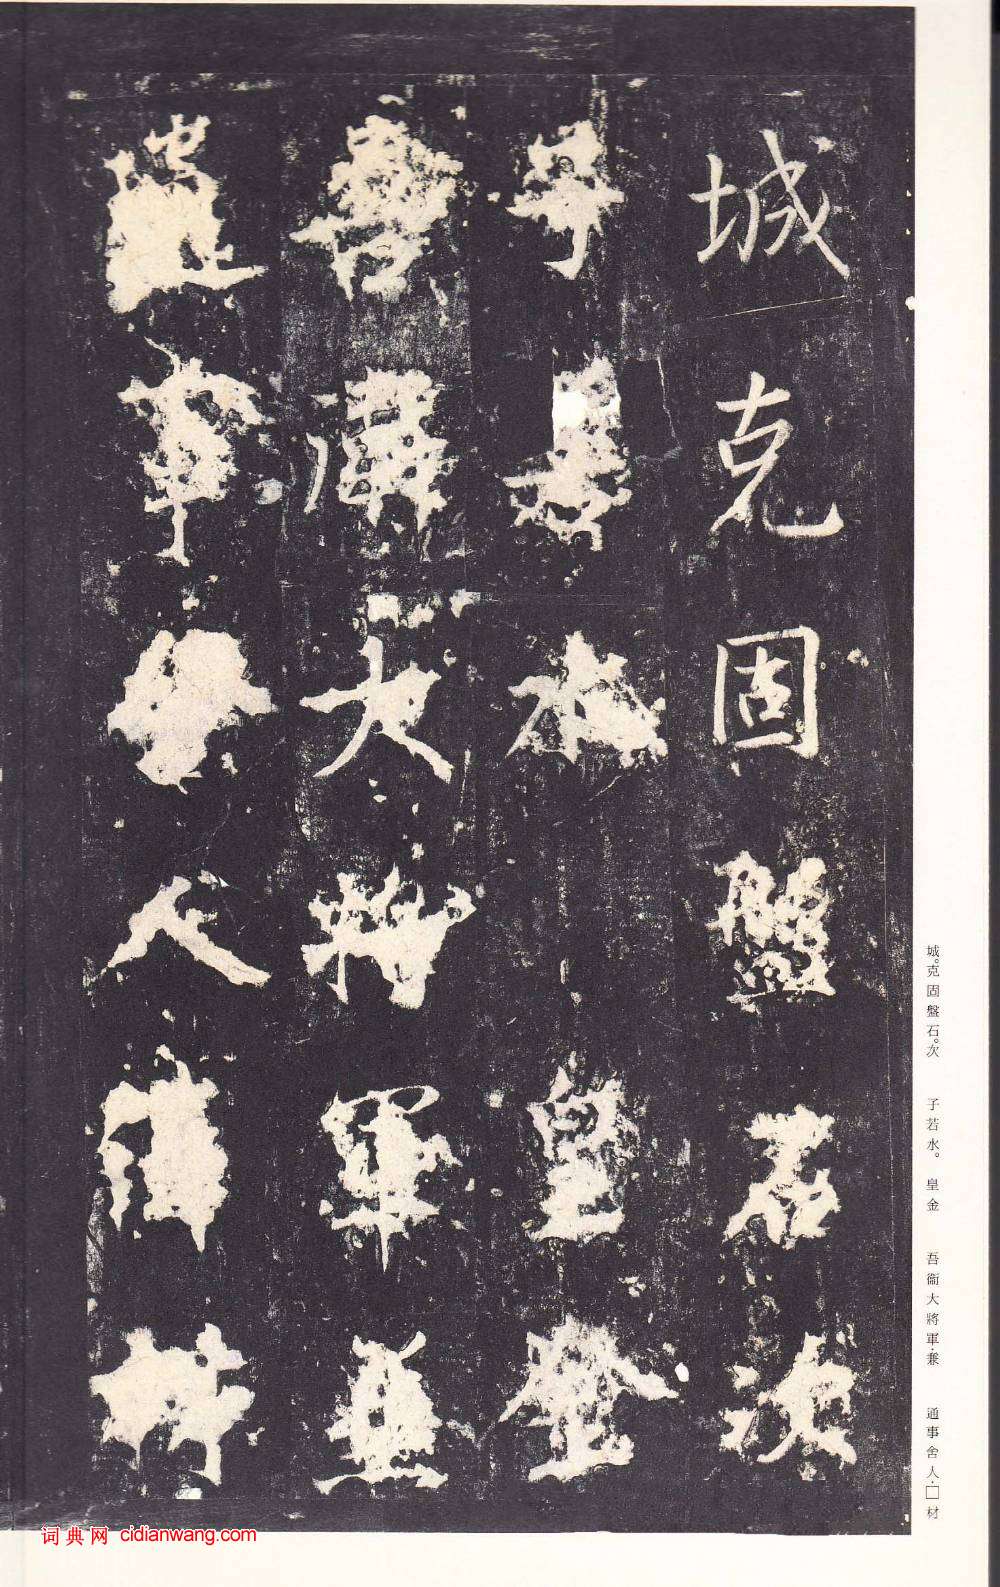 城克固盤石次
子若水 皇金
吾衛大將軍兼
通事舍人□材
城。克固盤石。次 子若水。 皇金 吾衞大將軍・兼 通事舍人・□材
词典网 cidianwang.com